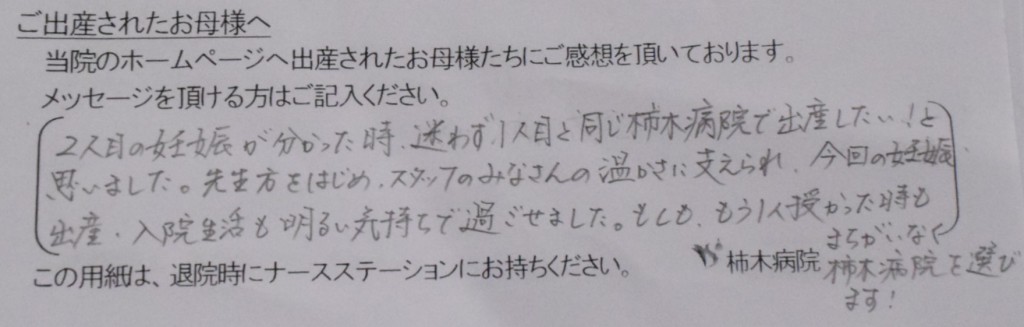 ご出産されたお母様へ
当院のホームページへ出産されたお母様たちにご感想を頂いております。
メッセージを頂ける方はご記入ください。
2人目の妊娠が分かった時、迷わず1人目と同じ柿木病院で出産したい!と
思いました。先生方をはじめ、スタッフのみなさんの温かさに支えられ、今回の妊娠
出産、入院生活も明るい気持ちで過ごせました。もしも、もう1人授かった時も
まちがいなく
柿木病院を選び
ます!
この用紙は、退院時にナースステーションにお持ちください。
柿木病院